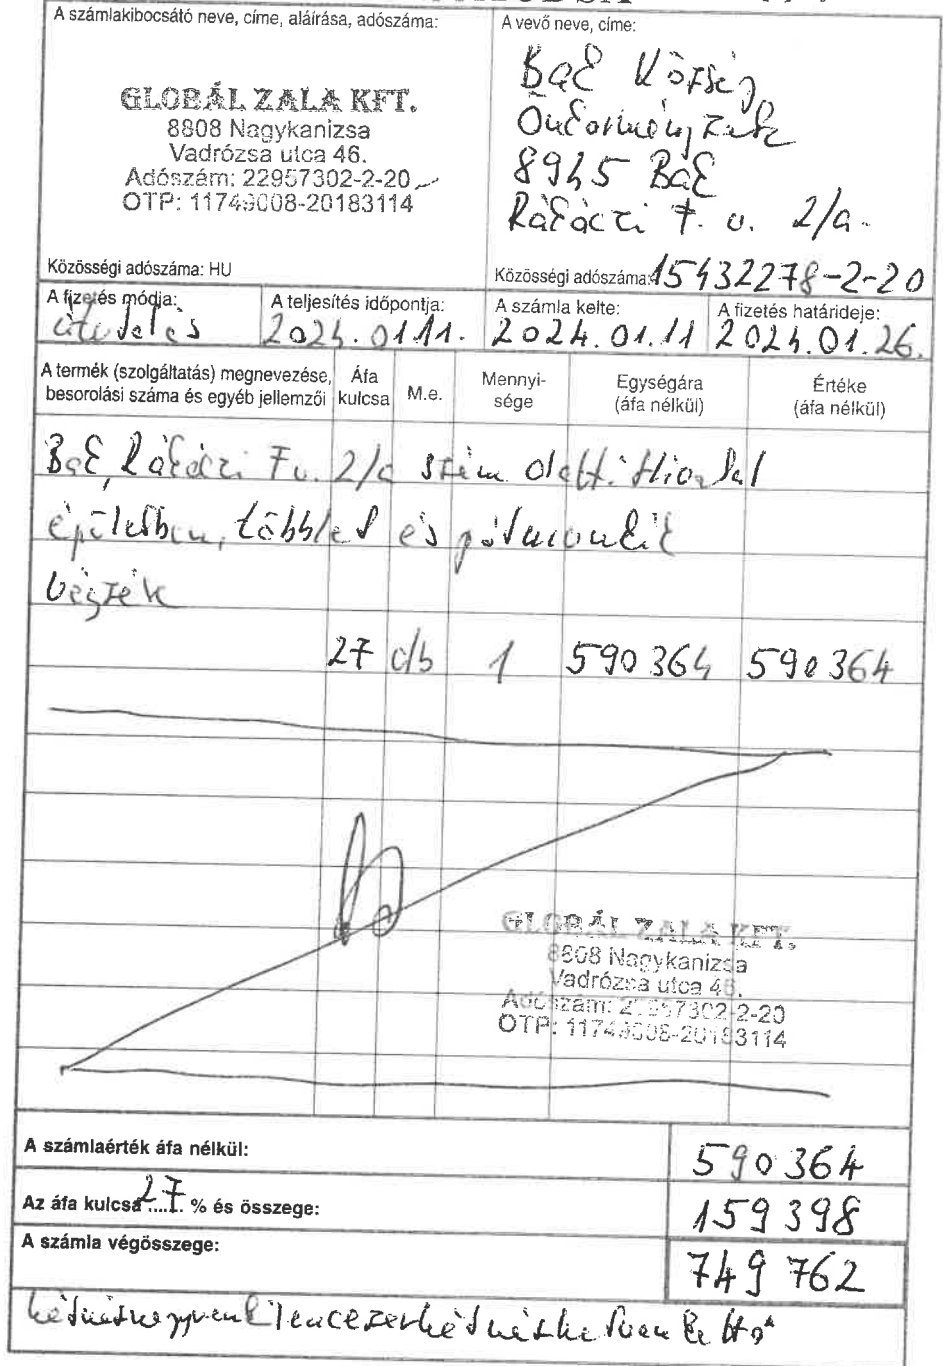 A számlakibocsátó neve, címe, aláírása, adószáma:
GLOBÁL ZALA KFT.
8808 Nagykanizsa
Vadrózsa utca 46.
Adószám: 22957302-2-20
OTP: 11749008-20183114
Közösségi adószáma: HU
A vevő neve, címe:
Bak Község
Önkormányzata
8945 Bak
Rákóczi F. u. 2/a.
Közösségi adószáma: 15432278-2-20
A fizetés módja: A teljesítés időpontja: A számla kelte: A fizetés határideje:
átutalás 2024.01.11. 2024.01.11 2024.01.26.
A termék (szolgáltatás) megnevezése, besorolási száma és egyéb jellemzői Áfa kulcsa M.e. Mennyisége Egységára (áfa nélkül) Értéke (áfa nélkül)
Bak, Rákóczi F u. 2/a szám alatti Hivatal
épületben, többlet és pótmunkái
végzék
27 db 1 590 364 590 364
GLOBÁL ZALA KFT.
8808 Nagykanizsa
Vadrózsa utca 46.
Adószám: 22957302-2-20
OTP: 11749008-20183114
A számlaérték áfa nélkül: 590 364
Az áfa kulcsa 27 % és összege: 159 398
A számla végösszege: 749 762